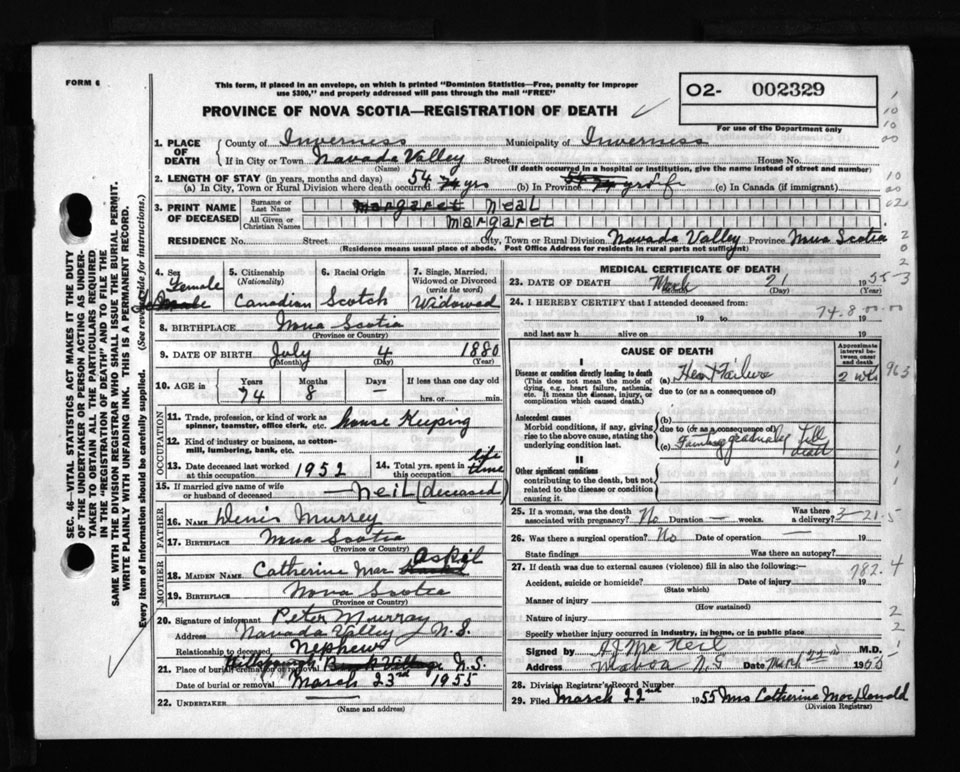 FORM 6
This form, if placed in an envelope, on which is printed "Dominion Statistics—Free, penalty for improper
use $300," and properly addressed will pass through the mail "FREE"
PROVINCE OF NOVA SCOTIA—REGISTRATION OF DEATH
02- 002329
For use of the Department only
1. PLACE OF DEATH County of Inverness Municipality of Inverness
If in City or Town Navada Valley Street House No.
(Name) (If death occurred in a hospital or institution, give the name instead of street and number)
2. LENGTH OF STAY (in years, months and days) 54
(a) In City, Town or Rural Division where death occurred yrs (b) In Province (c) In Canada (if immigrant)
3. PRINT NAME OF DECEASED Surname or Last Name Margaret Neal
All Given or Christian Names Margaret
RESIDENCE No. Street City, Town or Rural Division Navada Valley Province Nova Scotia
(Residence means usual place of abode. Post Office Address for residents in rural parts not sufficient)
4. Sex Female
5. Citizenship (Nationality) Canadian
6. Racial Origin Scotch
7. Single, Married, Widowed or Divorced (write the word) Widowed
8. BIRTHPLACE Nova Scotia
(Province or Country)
9. DATE OF BIRTH July 4 1880
(Month) (Day) (Year)
10. AGE in Years 74 Months 8 Days — If less than one day old hrs. or min.
OCCUPATION
11. Trade, profession, or kind of work as spinner, teamster, office clerk, etc. House Keeping
12. Kind of industry or business, as cotton-mill, lumbering, bank, etc.
13. Date deceased last worked at this occupation 1952
14. Total yrs. spent in this occupation life time
15. If married give name of wife or husband of deceased — Neil (deceased)
FATHER
16. NAME Denis Murrey
17. BIRTHPLACE Nova Scotia
(Province or Country)
MOTHER
18. MAIDEN NAME Catherine Mac Askil
19. BIRTHPLACE Nova Scotia
(Province or Country)
20. Signature of informant Peter Murray
Address Navada Valley N.S.
Relationship to deceased Nephew
21. Place of burial, cremation or removal N.S.
Date of burial or removal March 23rd 1955
22. UNDERTAKER
(Name and address)
MEDICAL CERTIFICATE OF DEATH
23. DATE OF DEATH March 21 1955
(Month) (Day) (Year)
24. I HEREBY CERTIFY that I attended deceased from:
19 to 19
and last saw h alive on 19
74.8
CAUSE OF DEATH
Approximate interval between onset and death
I
Disease or condition directly leading to death
(This does not mean the mode of dying, e.g., heart failure, asthenia, etc. It means the disease, injury, or complication which caused death.)
(a) Heart Failure 2 wks
due to (or as a consequence of)
Antecedent causes
Morbid conditions, if any, giving rise to the above cause, stating the underlying condition last.
(b)
due to (or as a consequence of)
(c) gradually till death
II
Other significant conditions
contributing to the death, but not related to the disease or condition causing it.
25. If a woman, was the death associated with pregnancy? No Duration — weeks. Was there a delivery?
3-21-5
26. Was there a surgical operation? No Date of operation — 19
State findings Was there an autopsy?
27. If death was due to external causes (violence) fill in also the following:—
782.4
Accident, suicide or homicide? Date of injury 19
(State which)
Manner of injury
(How sustained)
Nature of injury
Specify whether injury occurred in industry, in home, or in public place
Signed by A J McNeil M.D.
Address Mabou N.S Date March 22nd 1955
28. Division Registrar's Record Number
29. Filed March 22nd 1955 Mrs Catherine MacDonald
(Division Registrar)
SEC. 46—VITAL STATISTICS ACT MAKES IT THE DUTY
OF THE UNDERTAKER OR PERSON ACTING AS UNDER-
TAKER TO OBTAIN ALL THE PARTICULARS REQUIRED
IN THE "REGISTRATION OF DEATH" AND TO FILE THE
SAME WITH THE DIVISION REGISTRAR WHO SHALL ISSUE THE BURIAL PERMIT.
WRITE PLAINLY WITH UNFADING INK. THIS IS A PERMANENT RECORD.
Every item of information should be carefully supplied. (See reverse side for instructions.)